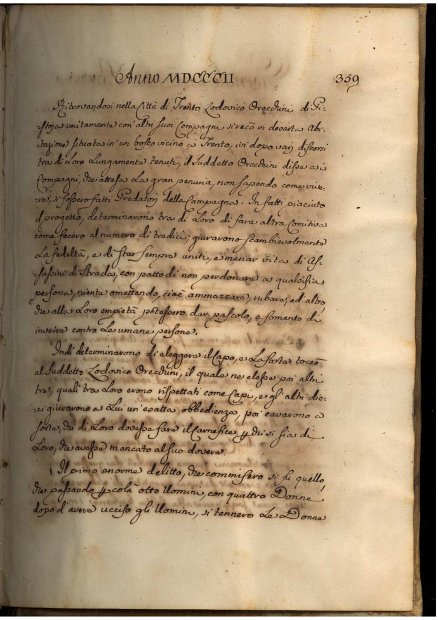 Anno MDCCCII
359
Ritrovandosi nella Città di Trento Lodovico Orecchini di Pi-
stoja unitamente con altri suoi Compagni si recò in deserta Abi-
tazione situata in un bosco vicino a Trento, in dopo varj discorsi
tra di Loro lungamente tenuti, il suddetto Orecchini disse a'
Compagni, che attesa la gran penuria, non sapendo come vive-
re, si fossero fatti Predatorj della Campagna. In fatti piaciuto
il progetto, determinarono tra di Loro di fare altra Comitiva
come fecero al numero di tredici; giurarono scambievolmente
la fedeltà, e di star sempre uniti, e menar vita di As-
sassini di Strada, con patto di non perdonare a qualsisia
persona, niente omettendo, cioè ammazzare, rubare, ed altro
che alla Loro empietà potessero dar pascolo, e fomento di
inveire contro le umane persone.
Indi determinarono di eleggere il Capo, e la sorte toccò
al suddetto Lodovico Orecchini, il quale ne elesse poi altri
tre, quali tra Loro erano rispettati come Capi, e gli altri die-
ci giurarono a Lui un'esatta obbedienza, poi cavarono a
sorte, chi di Loro dovesse fare il Carnefice p chi si sia di
Loro, che avesse mancato al suo dovere.
Il primo enorme delitto, che commisero si fu quello,
che passando p colà otto Uomini, con quattro Donne
dopo d'avere ucciso gli Uomini, si tennero le Donne